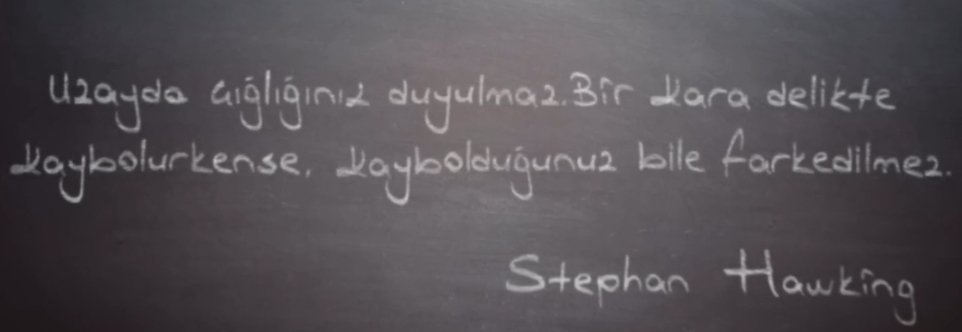 Uzayda çığlığınız duyulmaz. Bir kara delikte
kaybolurkense, kaybolduğunuz bile farkedilmez.
Stephan Hawking